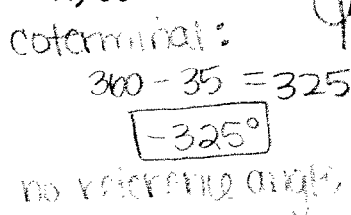 coterminal:
360 - 35 = 325
-325°
no reference angle,